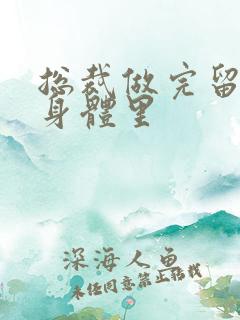 总裁做完留
身體里
深海人鱼
未经同意禁止转载